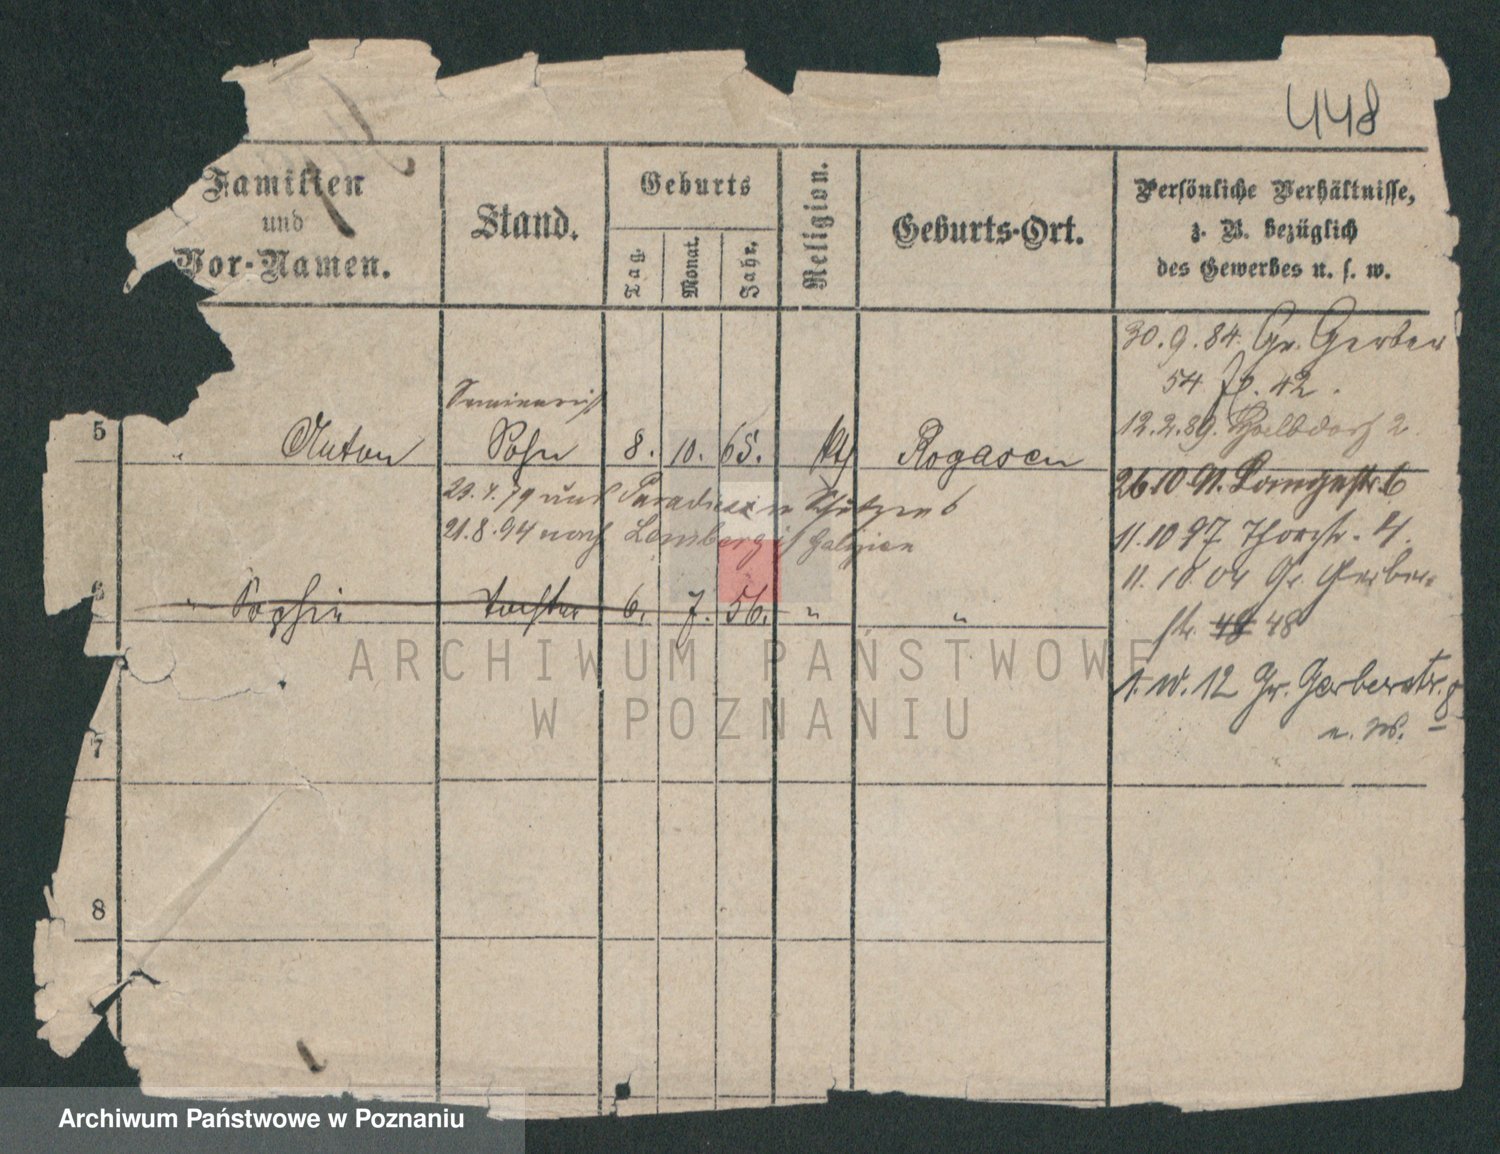 448
Familien
und
Vor-Namen.
Stand.
Geburts
Tag.
Monat.
Jahr.
Religion.
Geburts-Ort.
Persönliche Verhältnisse,
z. B. bezüglich
des Gewerbes u. s. w.
30.9.84. Gr. Gerber
54 42.
Seminarist
12.2.89. 2
5 " Anton Sohn 8. 10. 65. kth Rogasen
26.10.91. Langestr. 6
23.4.79 nach Paradies
21.8.94 nach Lemberg in Galizien
11.10.97 Thorstr. 4.
11.10.04 Gr. Gerber-
6 " Sophie Tochter 6. 7. 56. " "
str. 48 48
1.10.12 Gr. Gerberstr. 8
7
8
ARCHIWUM PAŃSTWOWE
W POZNANIU
Archiwum Państwowe w Poznaniu